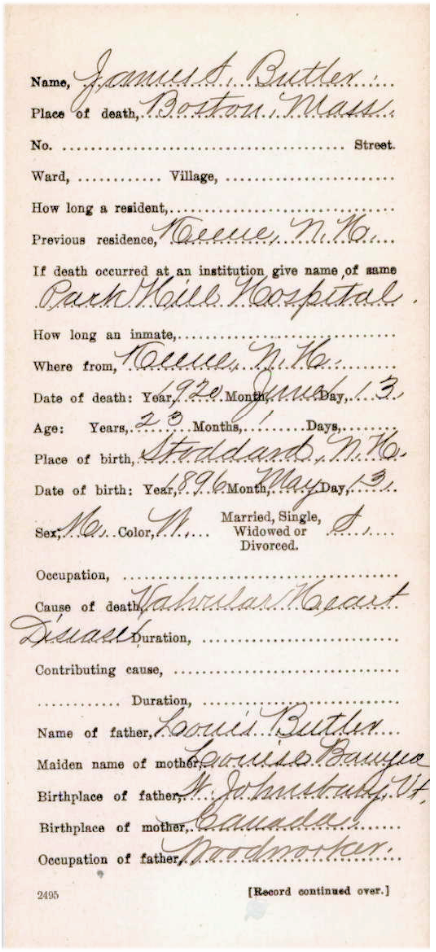 Name, James S. Butler.
Place of death, Boston, Mass.
No. Street.
Ward, Village,
How long a resident,
Previous residence, Keene, N.H.
If death occurred at an institution give name of same
Park Hill Hospital.
How long an inmate,
Where from, Keene, N.H.
Date of death: Year, 1920 Month, June Day, 13.
Age: Years, 23 Months, 1 Days,
Place of birth, Stoddard, N.H.
Date of birth: Year, 1896 Month, May Day, 13.
Sex, M. Color, W. Married, Single, Widowed or Divorced. S.
Occupation,
Cause of death, Valvular Heart
Disease Duration,
Contributing cause,
Duration,
Name of father, Louis Butler
Maiden name of mother, Louise
Birthplace of father, St. Johnsbury, Vt.
Birthplace of mother, Canada
Occupation of father, Woodworker.
2495 [Record continued over.]